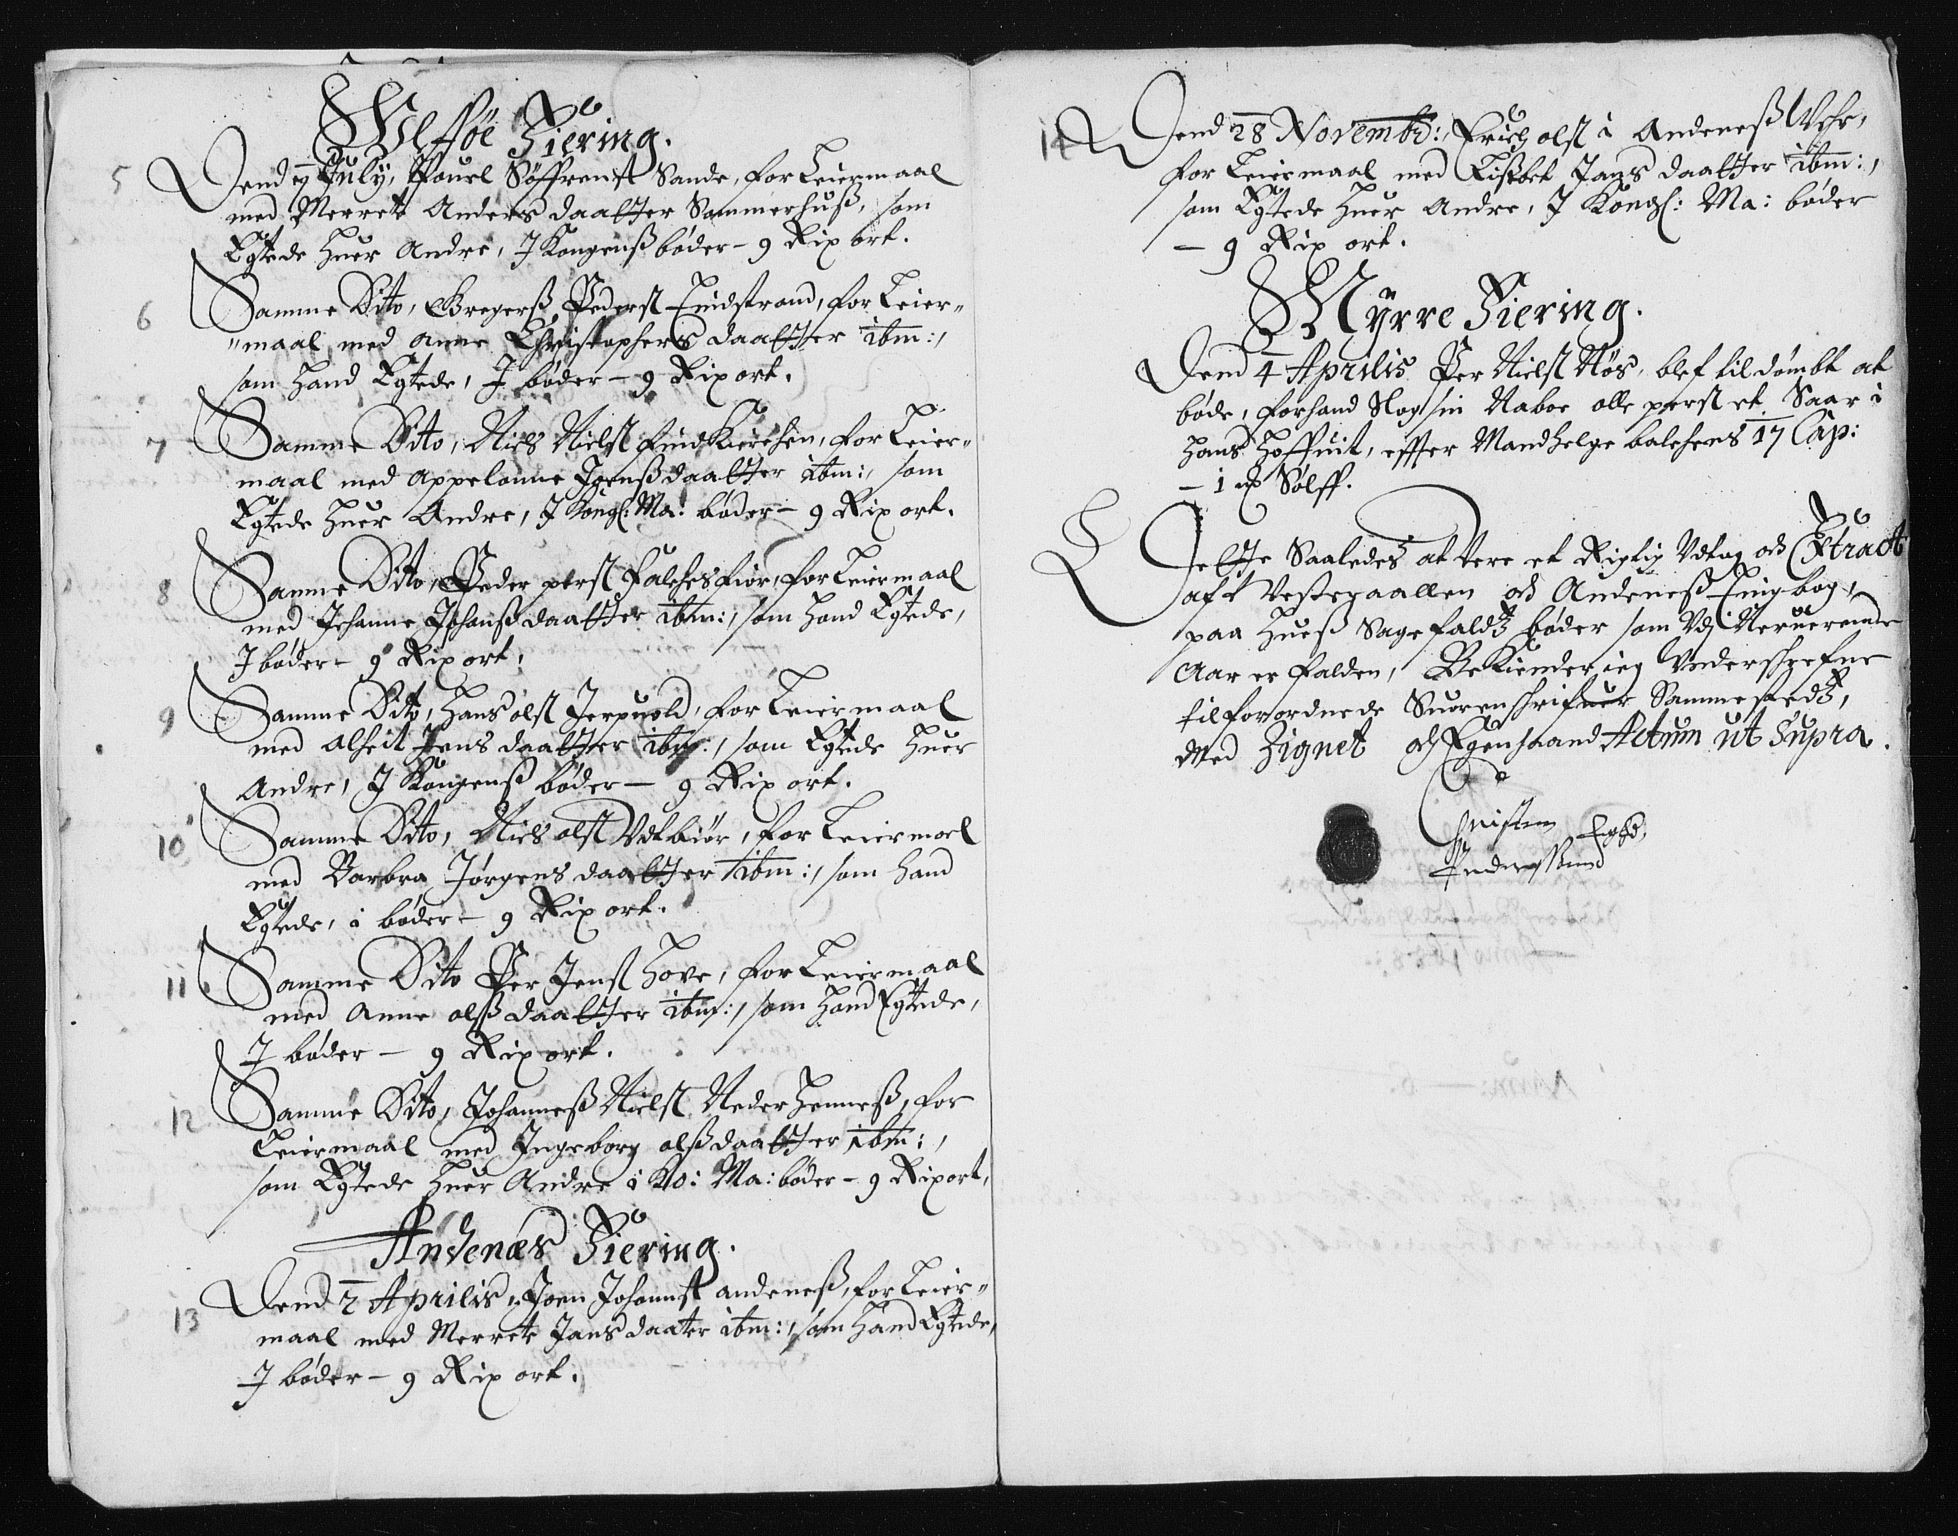 Ulføe Fiering.
5 Dend 7 July, Pouel Søffrenst Sande, for Leiermaal
med Merrete Anders daatter Sommerhuß, som
Egtede huer Andre, J Kongenß bøder - 9 Rix ort.
6 Samme Dito, Gregerß Pederst Lindstrand, for Leier-
"maal med Anne Christophers daatter ibm:,
som hand Egtede, J bøder - 9 Rix ort.
7 Samme Dito, Niels Nielst findKirchen, for Leier-
maal med Appelonne Joenß daatter ibm:, som
Egtede huer Andre, J Kongl: Ma: bøder - 9 Rix ort.
8 Samme Dito, Peder perst Falchesfiør, for Leiermaal
med Johanne Johanß daatter ibm:, som hand Egtede,
J bøder - 9 Rix ort.
9 Samme Dito, Hans olst Jerpuold, for Leiermaal
med Alheit Jens daatter ibm:, som Egtede huer
Andre, J Kongenß bøder - 9 Rix ort.
10 Samme Dito, Niels olst Vdtbiør, for Leiermoel
med Barbra Jørgens daatter ibm:, som hand
Egtede, i bøder - 9 Rix ort.
11 Samme Dito Per Jenst Hove, for Leiermaal
med Anne olß daatter ibm:, som hand Egtede,
J bøder - 9 Rix ort.
12 Samme Dito, Johanneß Nielst Neder Henneß, for
Leiermaal med Ingeborg olß daatter ibm:,
som Egtede huer Andre i Ko: Ma: bøder - 9 Rix ort.
Andenæs Fiering.
13 Dend 2 Aprilis, Joen Johanst andeneß, for Leier-
maal med Merrete Jans daater ibm:, som hand Egtede,
J bøder - 9 Rix ort.
14 Dend 28 Novembr:, Erich olst i Andeneß Vehr,
for Leiermaal med Lißbet Jans daatter ibm:,
som Egtede huer Andre, J Kongl: Ma: bøder
- 9 Rix ort.
Myrre Fiering.
Dend 4 Aprilis Per Nielst Høs, blef tildømbt at
bøde, forhand Slog sin Naboe olle perst et Saar i
hans hoffuit, effter Mandhelge balchens 17 Cap:
- 1 Sølff.
Dette Saaledes at vere et Rigtig Vdtog och Extract
aff Vesteraallen och Andeneß Tingbog,
paa hueß Sagefaldz bøder som Vdj Neruerende
Aar er falden, Bekiender ieg Underschrefne
tilforordnede Suorenschrifuer Sammestedz,
Med Zignet och Egenhaand Actum ut Supra.
Christen
Anderssenn Eghd,